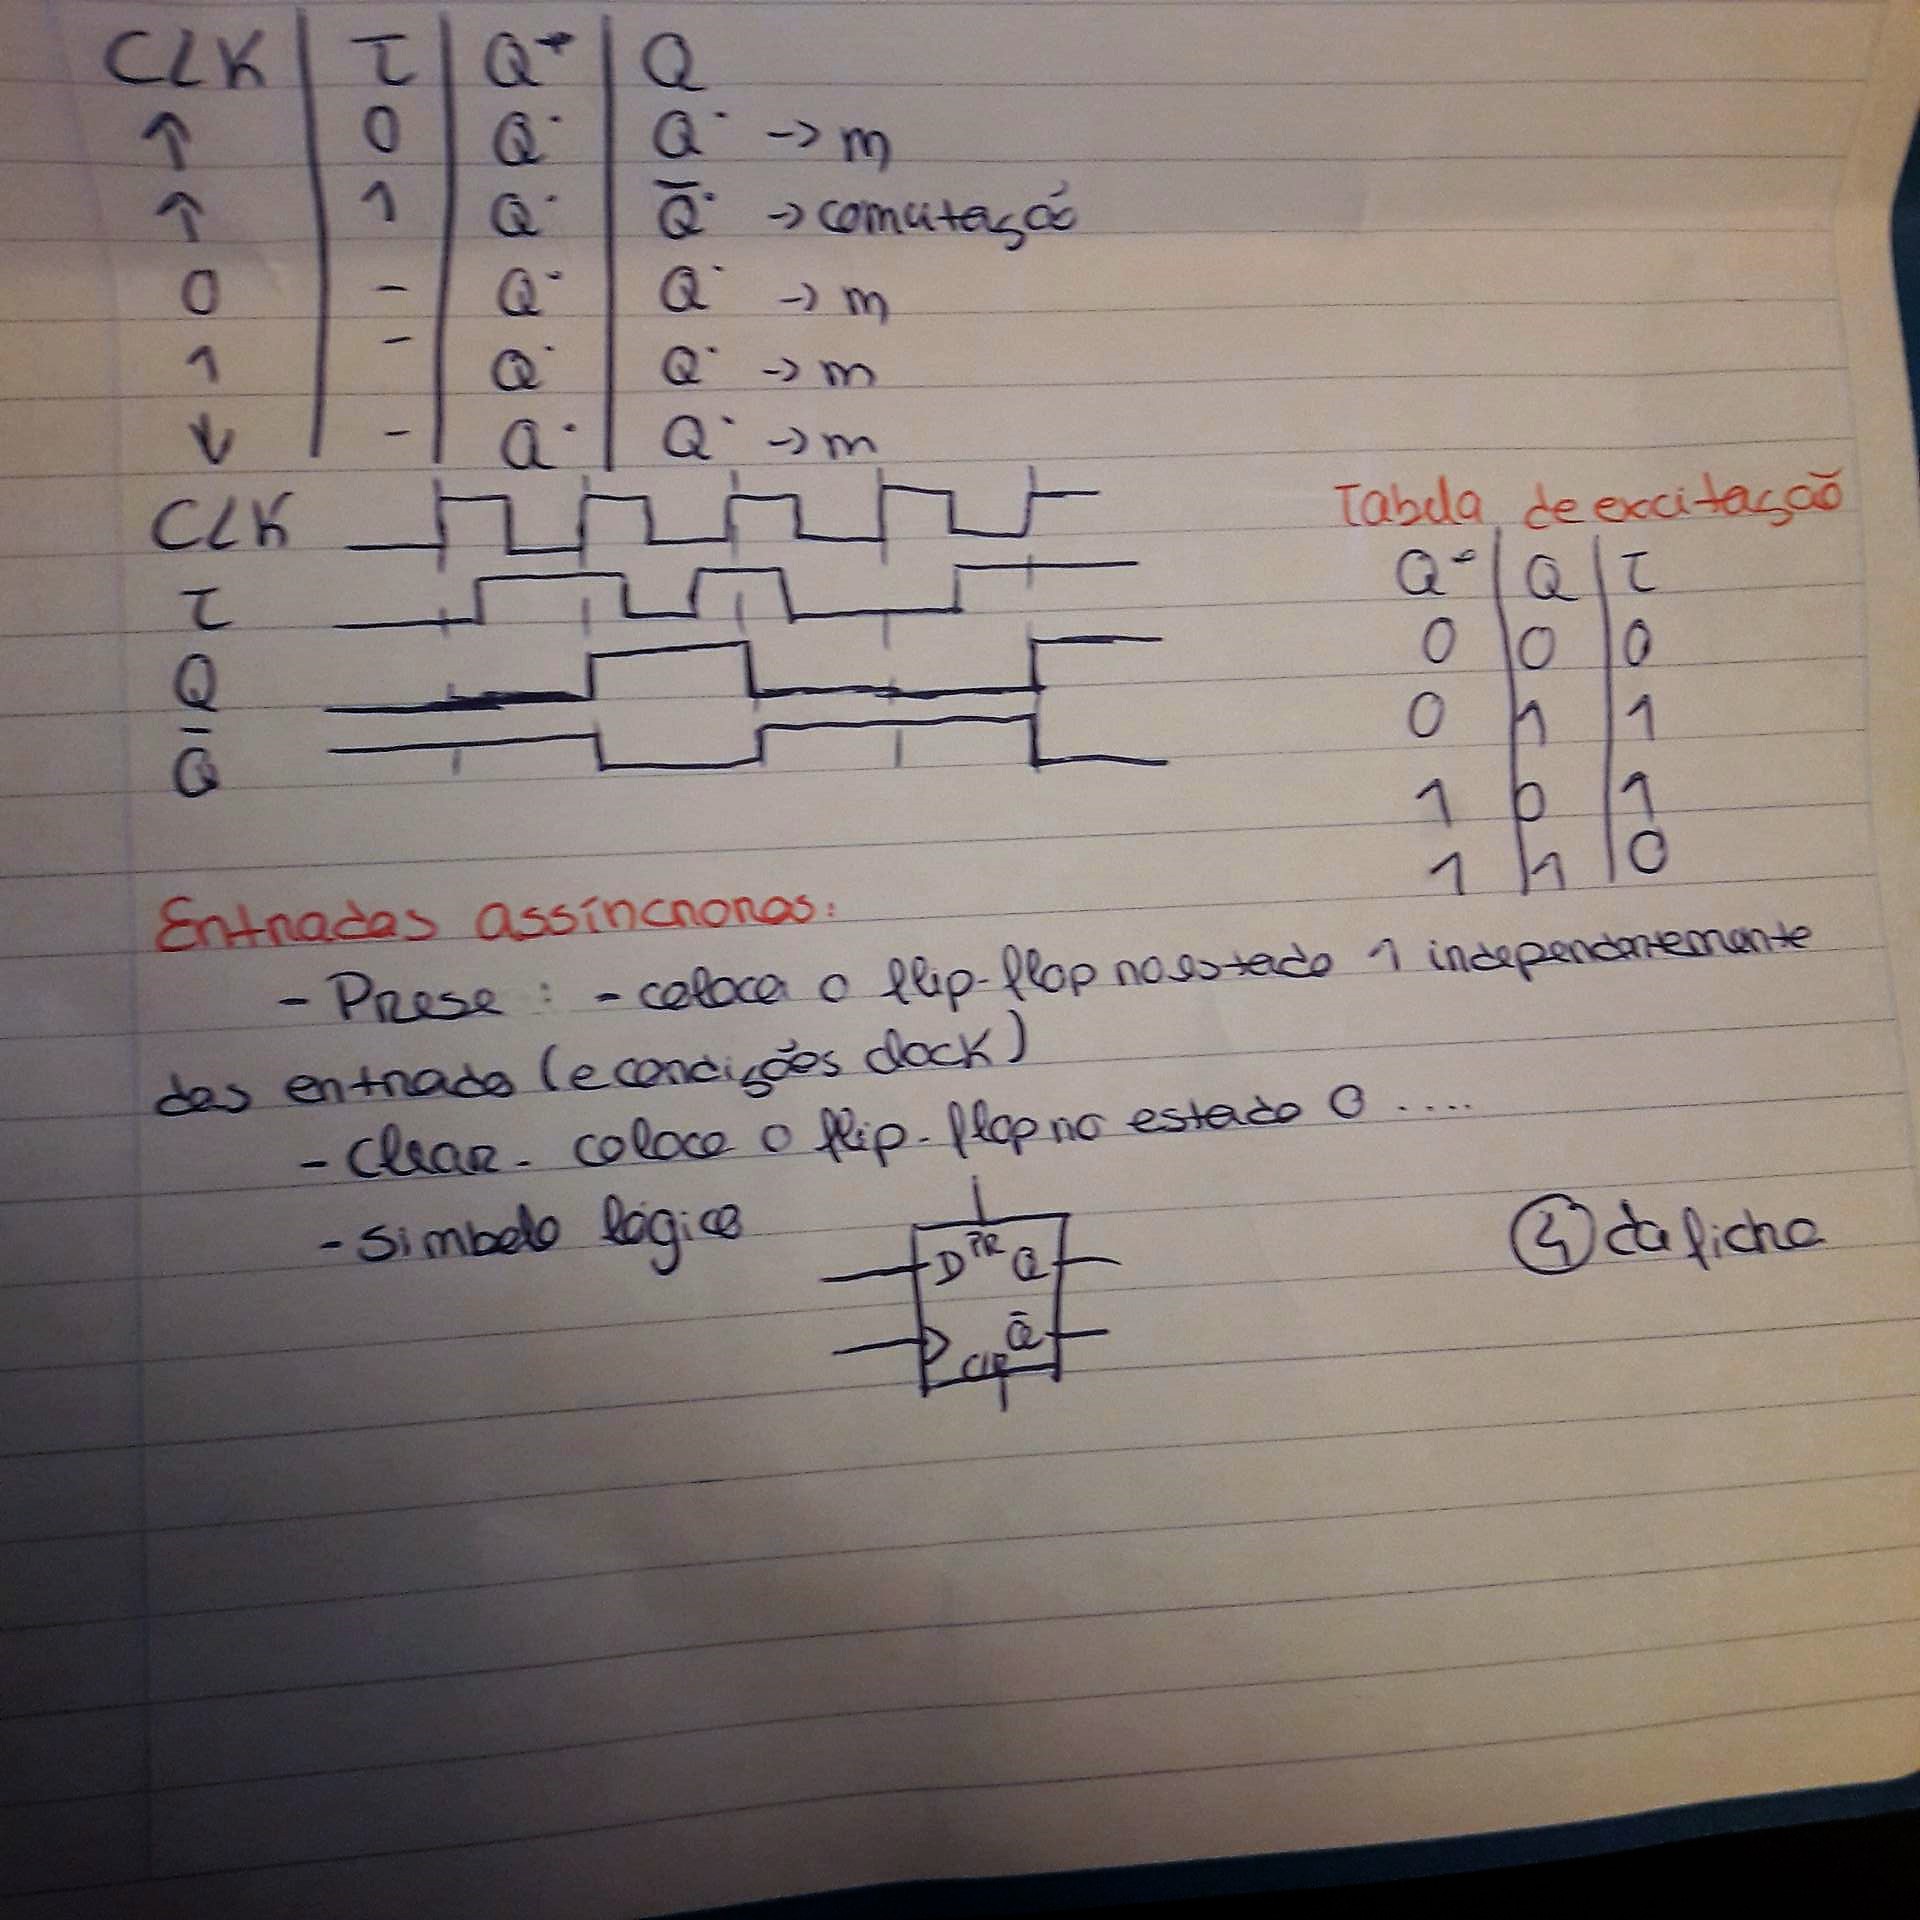 CLK T Q• Q
↑ 0 Q• Q• -> m
↑ 1 Q• Q̅• -> comutação
0 - Q• Q• -> m
1 - Q• Q• -> m
↓ - Q• Q• -> m
CLK
T
Q
Q̅
Tabela de excitação
Q• Q T
0 0 0
0 1 1
1 0 1
1 1 0
Entradas assíncronas:
- Prese : - coloca o flip-flop no estado 1 independentemente
das entrada (e condições clock)
- Clear - coloca o flip-flop no estado 0 ....
- simbolo lógico
D PR Q
CLR Q̅
④ da ficha